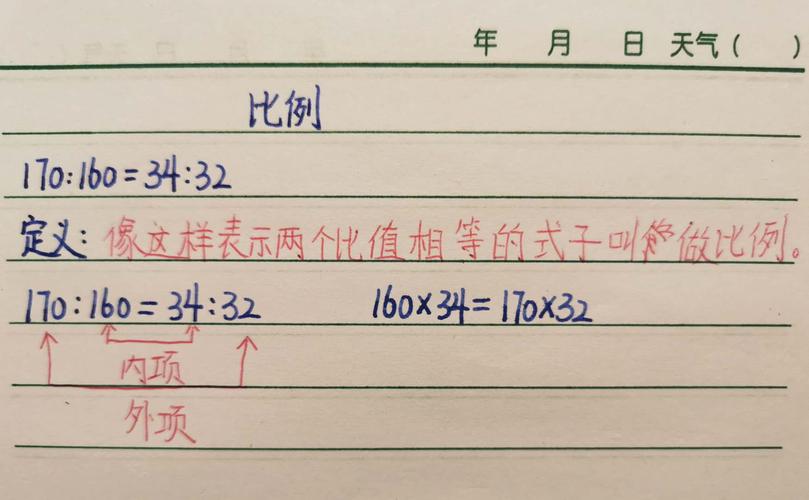 年 月 日 天气( )
比例
170:160=34:32
定义:像这样表示两个比值相等的式子叫做比例。
170:160=34:32 160×34=170×32
内项
外项